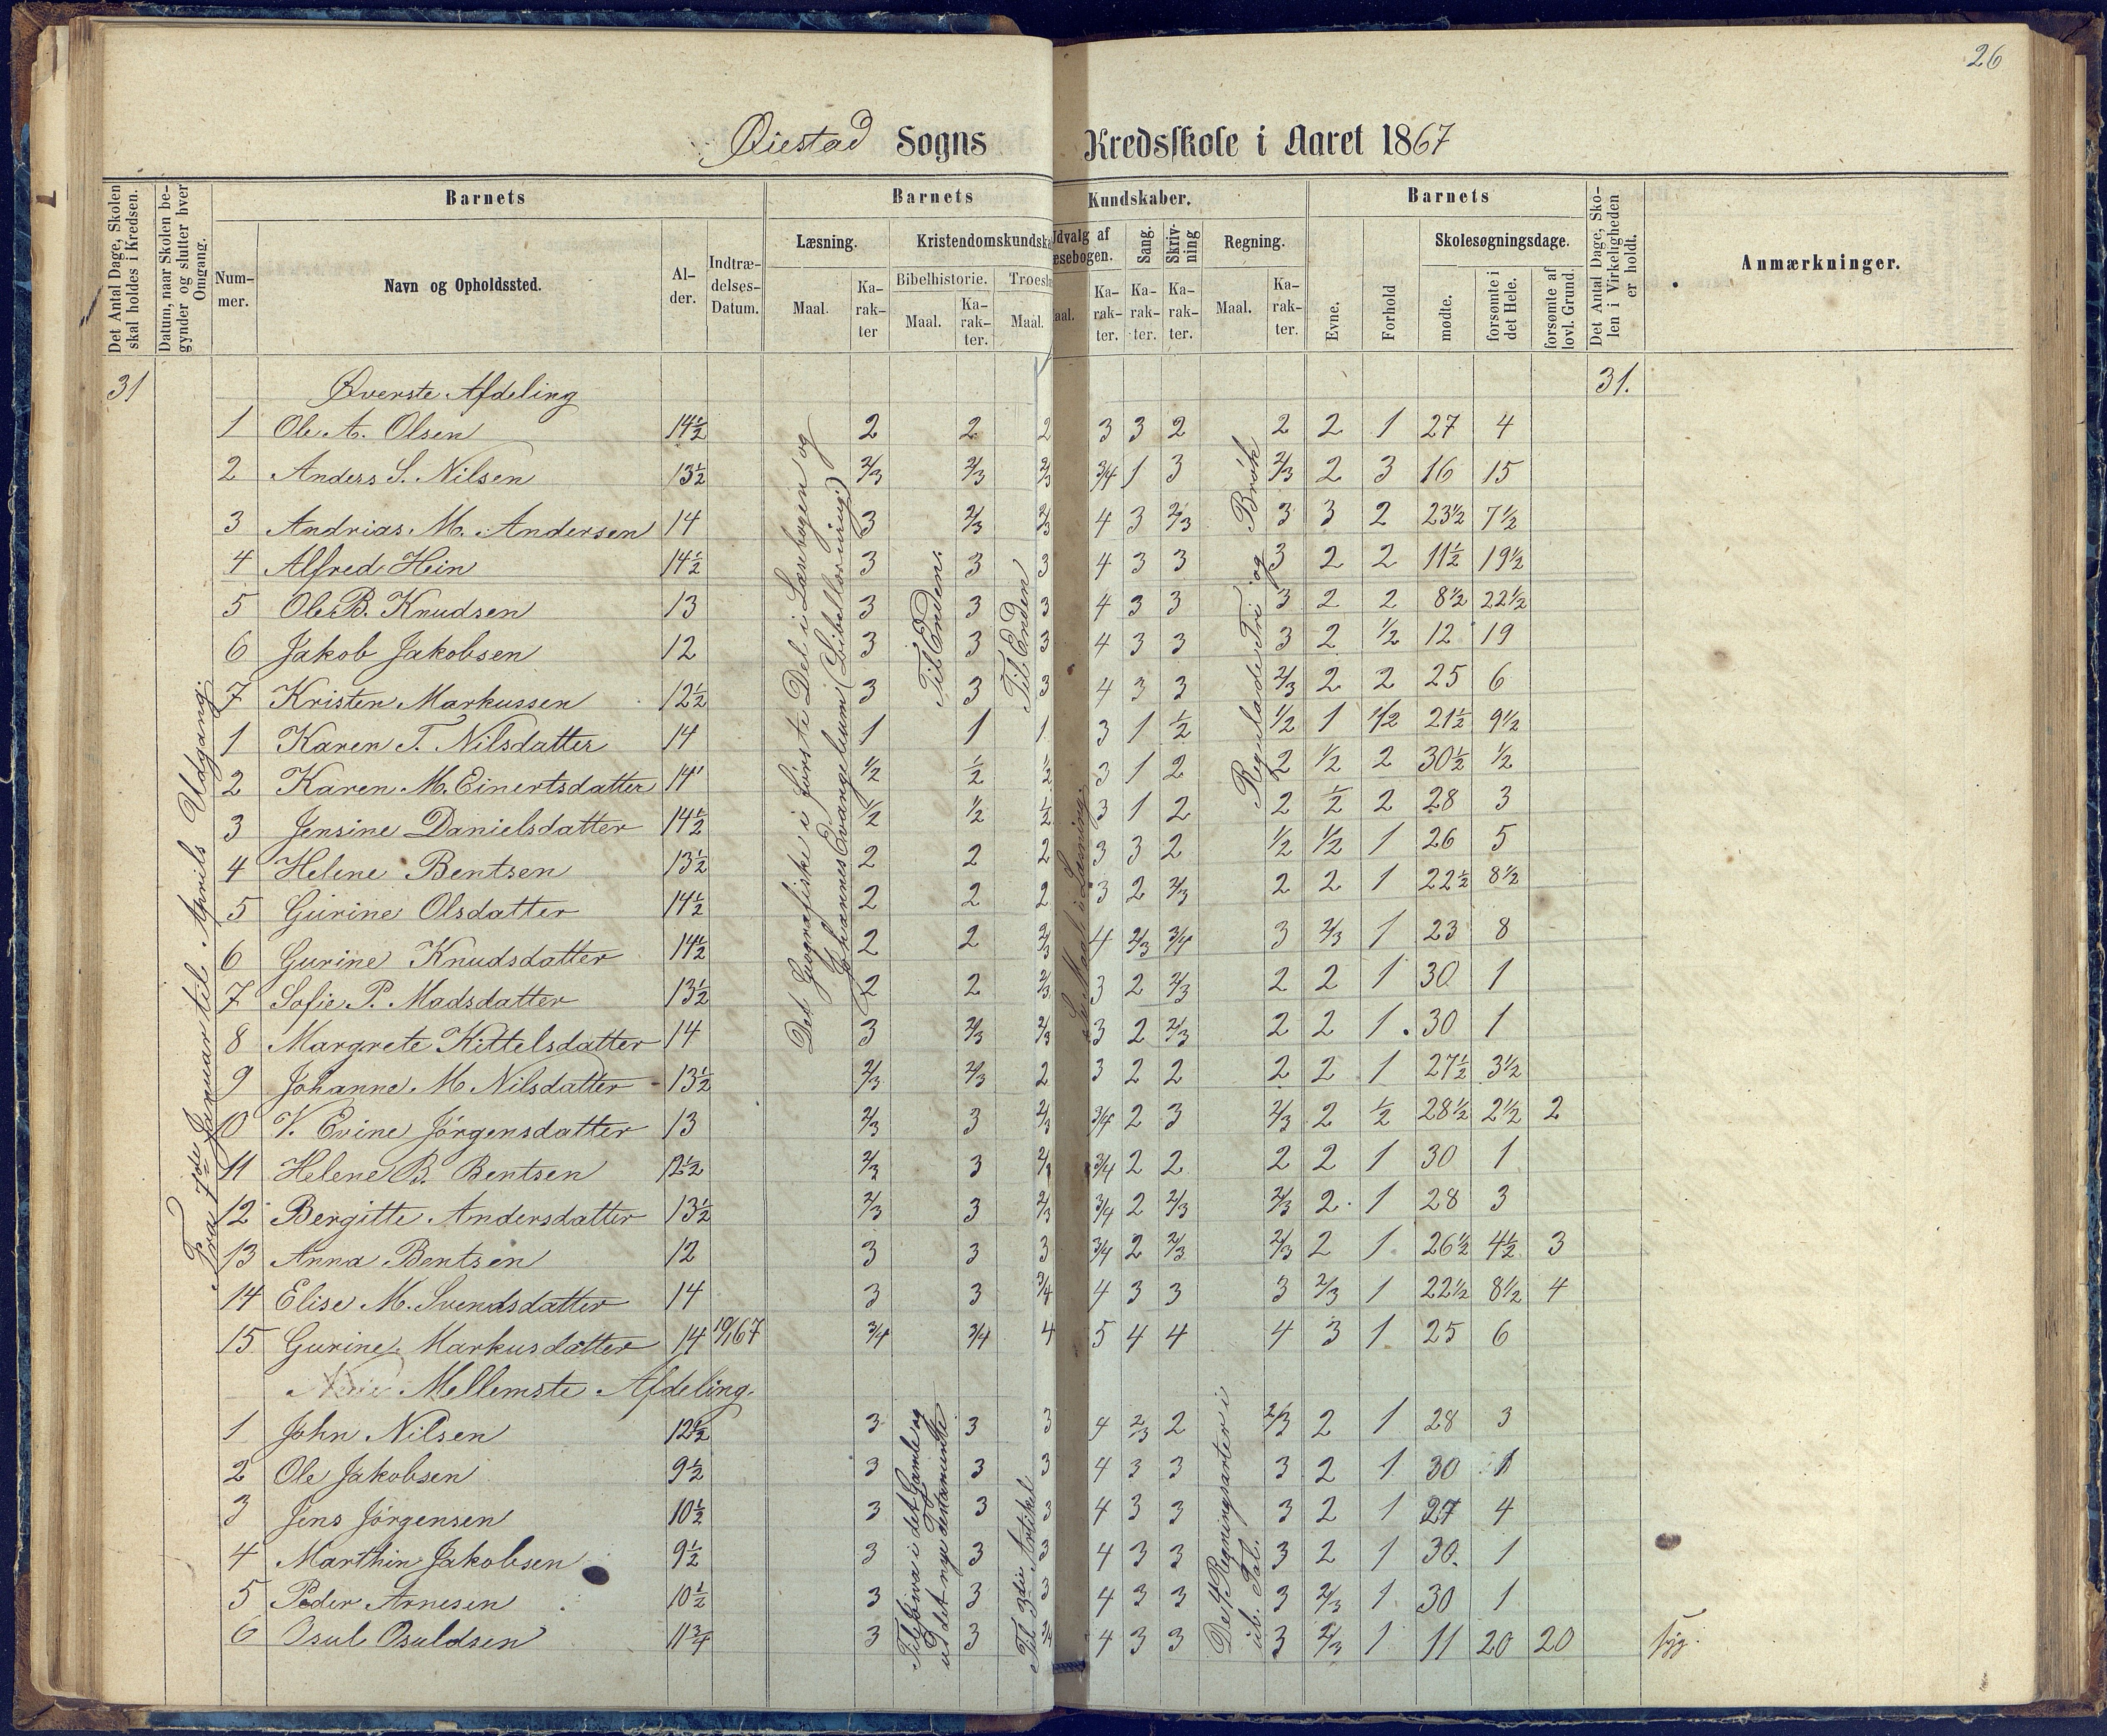 26
Øiestad Sogns Kredsskole i Aaret 1867
Det Antal Dage, Skolen skal holdes i Kredsen.
Datum, naar Skolen begynder og slutter hver Omgang.
Barnets
Nummer.
Navn og Opholdssted.
Alder.
Indtrædelses-Datum.
Barnets Kundskaber.
Læsning.
Maal.
Karakter
Kristendomskundska
Bibelhistorie.
Maal.
Karakter.
Troesl
Maal.
Udvalg af
æsebogen.
aal.
Karakter.
Sang.
Karakter.
Skrivning
Karakter.
Regning.
Maal.
Karakter.
Barnets
Evne.
Forhold
Skolesøgningsdage.
mødte.
forsømte i det Hele.
forsømte af lovl. Grund.
Det Antal Dage, Skolen i Virkeligheden er holdt.
Anmærkninger.
31 Øverste Afdeling 31.
Fra 7de Januar til Aprils Udgang.
Det Geografiske i første Del i Læsebogen og
Johannes Evangelium
Til Enden
Til Enden
Se Maal i Læsning.
Regulade Tri og Brøk
1 Ole A. Olsen 14½ 2 2 2 3 3 2 2 2 1 27 4
2 Anders S. Nilsen 13½ 2/3 2/3 2/3 3/4 1 3 2/3 2 3 16 15
3 Andrias M. Andersen 14 3 2/3 2/3 4 3 2/3 3 3 2 23½ 7½
4 Alfred Hein 14½ 3 3 3 4 3 3 3 2 2 11½ 19½
5 Ole B. Knudsen 13 3 3 3 4 3 3 3 2 2 8½ 22½
6 Jakob Jakobsen 12 3 3 3 4 3 3 3 2 1/2 12 19
7 Kristen Markussen 12½ 3 3 3 4 3 3 2/3 2 2 25 6
1 Karen T. Nilsdatter 14 1 1 1 3 1 1/2 1/2 1 1/2 21½ 9½
2 Karen M. Einertsdatter 14 1/2 1/2 1/2 3 1 2 2 1/2 2 30½ ½
3 Jensine Danielsdatter 14½ 1/2 1/2 1/2 3 1 2 2 1/2 2 28 3
4 Helene Bentsen 13½ 2 2 2 3 3 2 1/2 1/2 1 26 5
5 Gurine Olsdatter 14½ 2 2 2 3 2 2/3 2 2 1 22½ 8½
6 Gurine Knudsdatter 14½ 2 2 2/3 4 2/3 3/4 3 2/3 1 23 8
7 Sofie P. Madsdatter 13½ 2 2 2/3 3 2 2/3 2 2 1 30 1
8 Margrete Kittelsdatter 14 3 2/3 2/3 3 2 2/3 2 2 1 30 1
9 Johanne M Nilsdatter 13½ 2/3 2/3 2 3 2 2 2 2 1 27½ 3½
10 V. Evine Jørgensdatter 13 2/3 3 2/3 3/4 2 3 2/3 2 1/2 28½ 2½ 2
11 Helene B. Bentsen 12½ 2/3 3 3/4 2 2 2 2 1 30 1
12 Bergitte Andersdatter 13½ 2/3 3 2/3 3/4 2 2/3 2/3 2 1 28 3
13 Anna Bentsen 12 3 3 3 3/4 2 2/3 2/3 2 1 26½ 4½ 3
14 Elise M. Svendsdatter 14 3 3 3/4 4 3 3 3 2/3 1 22½ 8½ 4
15 Gurine Markusdatter 14 3/4 3/4 4 5 4 4 4 3 1 25 6
Mellemste Afdeling.
i det Gamle og
ud det nye Testamente
Til 3die Artikel
De 4 Regningsarter i
ub. Tal.
1 John Nilsen 12½ 3 3 3 4 2/3 2 2/3 2 1 28 3
2 Ole Jakobsen 9½ 3 3 3 4 3 3 3 2 1 30 1
3 Jens Jørgensen 10½ 3 3 3 4 3 3 3 2 1 27 4
4 Marthin Jakobsen 9½ 3 3 3 4 3 3 3 2 1 30 1
5 Peder Arnesen 10½ 3 3 3 4 3 3 3 2/3 1 30 1
6 Osul Osuldsen 11¾ 3 3 3/4 4 3 3 3 2/3 1 11 20 20 syg.